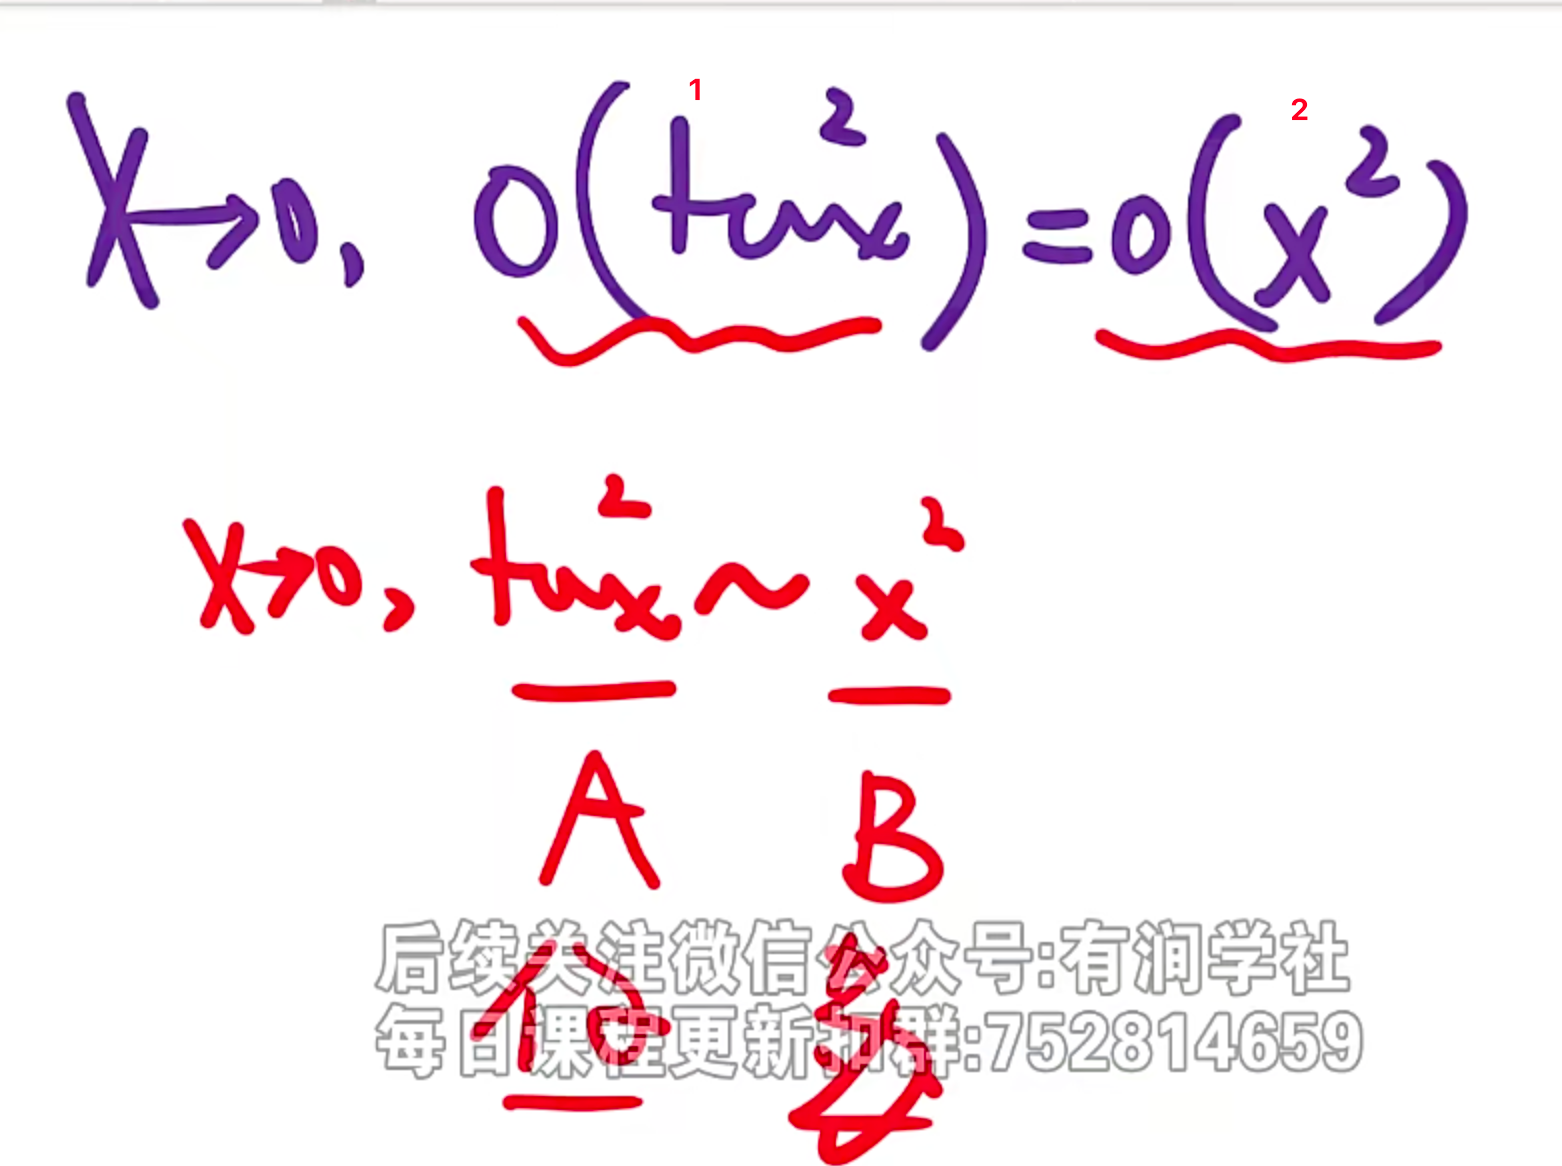 1 2
x→0, o(tan²x)=o(x²)
x→0, tan²x~x²
A B
后续关注微信公众号:有润学社
每日课程更新扣群:752814659